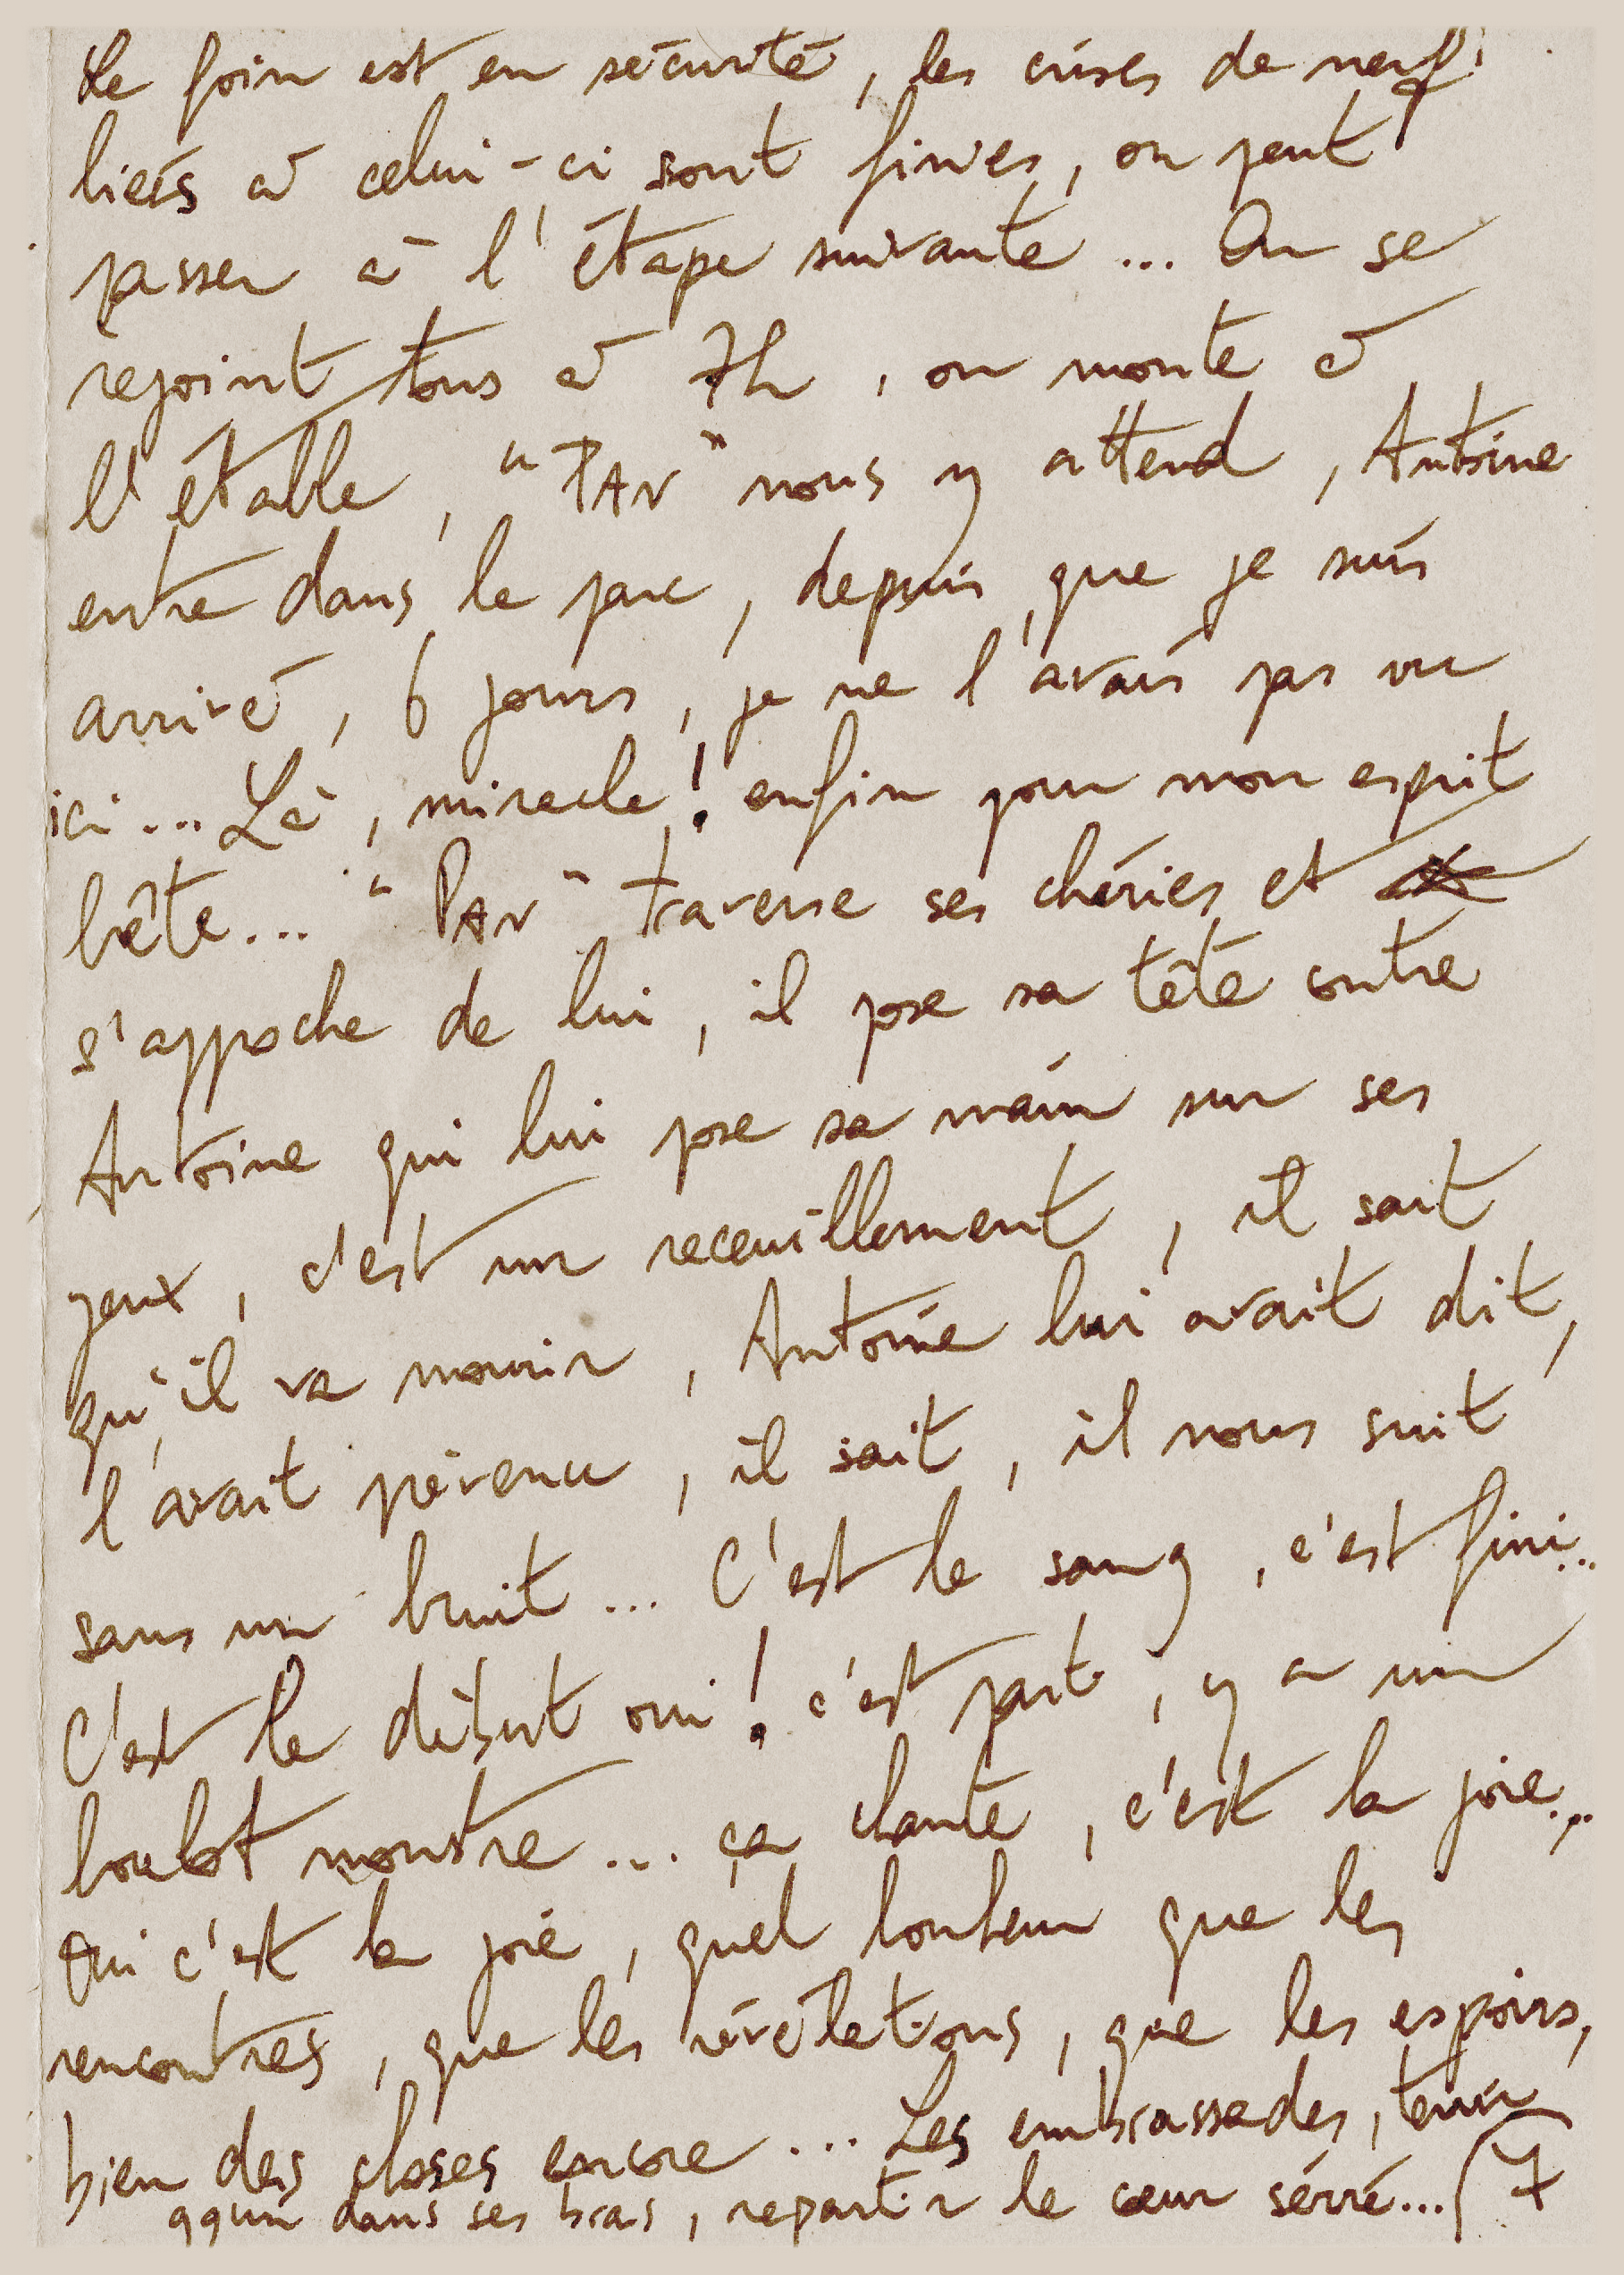 Le foin est en sécurité, les crises de nerf
liées à celui-ci sont finies, on peut
passer à l'étape suivante... On se
rejoint tous à 7h, on monte à
l'étable, "PAN" nous y attend, Antoine
entre dans le parc, depuis que je suis
arrivé, 6 jours, je ne l'avais pas vu
ici... Là, miracle! enfin pour mon esprit
bête... "PAN" traverse ses chéries et
s'approche de lui, il pose sa tête contre
Antoine qui lui pose sa main sur ses
yeux, c'est un receuillement, il sait
qu'il va mourir, Antoine lui avait dit,
l'avait prévenu, il sait, il nous suit
sans un bruit... C'est le sang, c'est fini...
C'est le début oui! c'est parti, y a un
boulot monstre... ça chante, c'est la joie...
Oui c'est la joie, quel bonheur que les
rencontres, que les révélations, que les espoirs,
bien des choses encore... Les embrassades, tenir
qqun dans ses bras, repartir le cœur sérré... 7